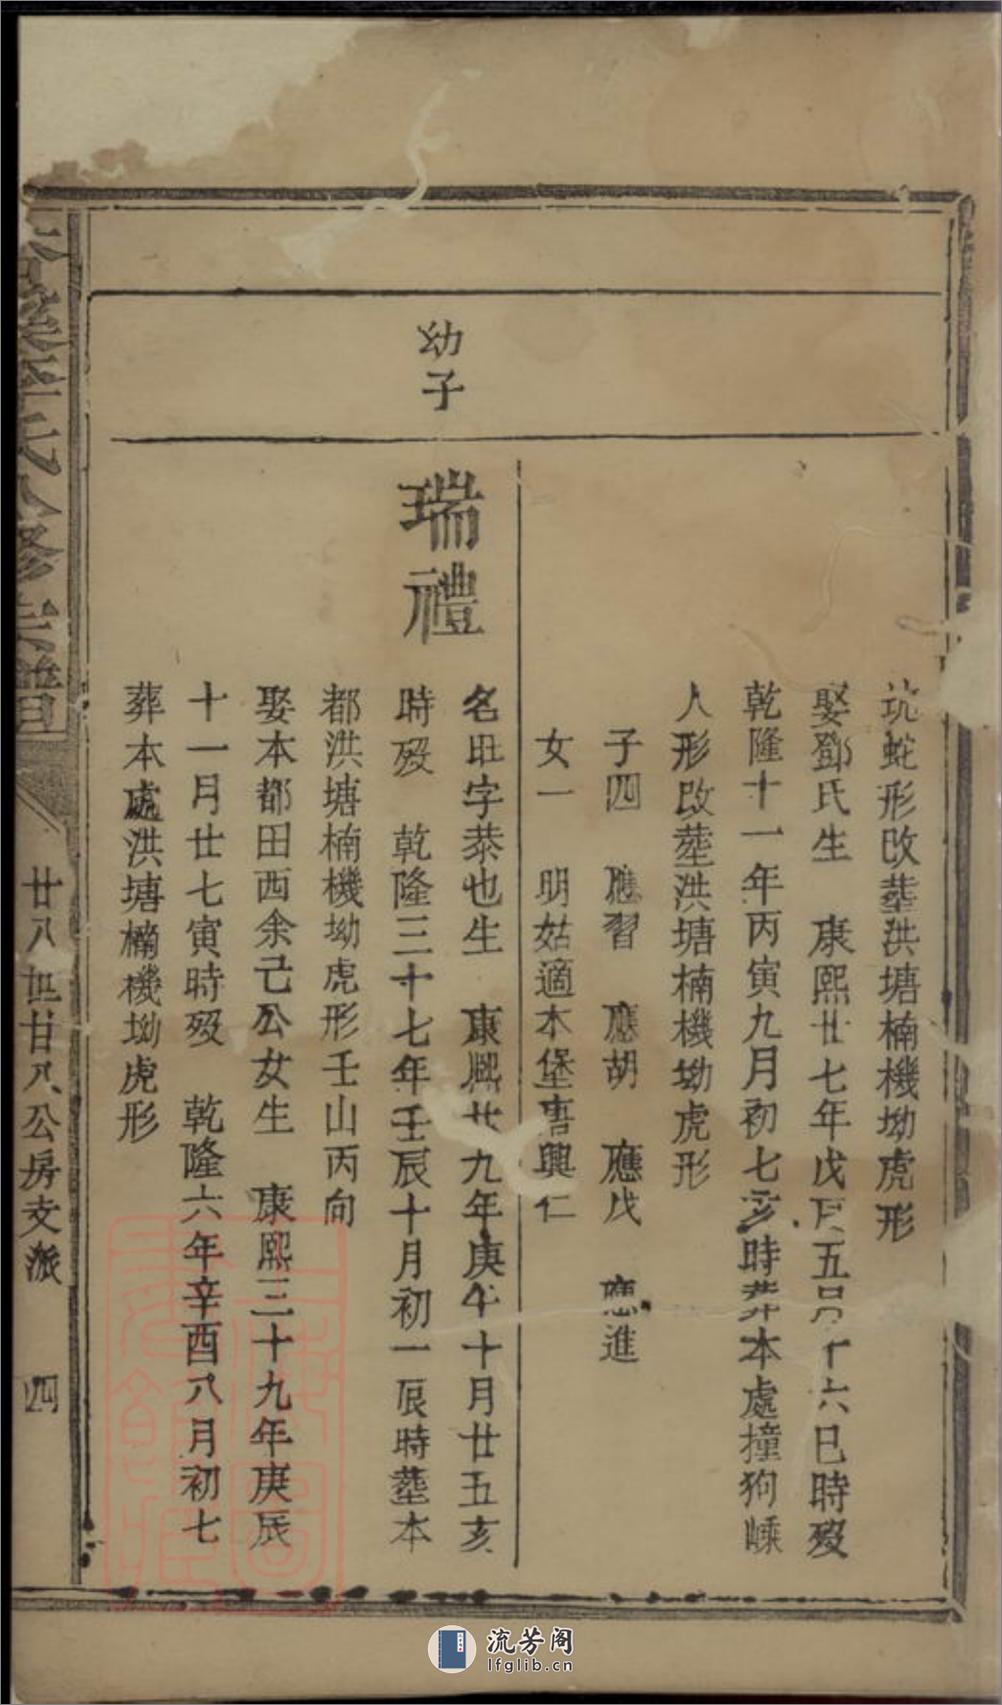 坑蛇形改塟洪塘楠機坳虎形
娶鄧氏生　康熙廿七年戊辰五月十六巳時歿
乾隆十一年丙寅九月初七亥時葬本處撞狗嵊
人形改塟洪塘楠機坳虎形
子四　應習　應胡　應戊　應進
女一　明姑適本堡唐興仁
幼子
瑞禮
名旺字恭也生　康熙廿九年庚午十月廿五亥
時歿　乾隆三十七年壬辰十月初一辰時塟本
都洪塘楠機坳虎形壬山丙向
娶本都田西余己公女生　康熙三十九年庚辰
十一月廿七寅時歿　乾隆六年辛酉八月初七
葬本處洪塘楠機坳虎形
李氏八修宗譜
廿八世廿八公房支派　四
流芳阁
lfglib.cn